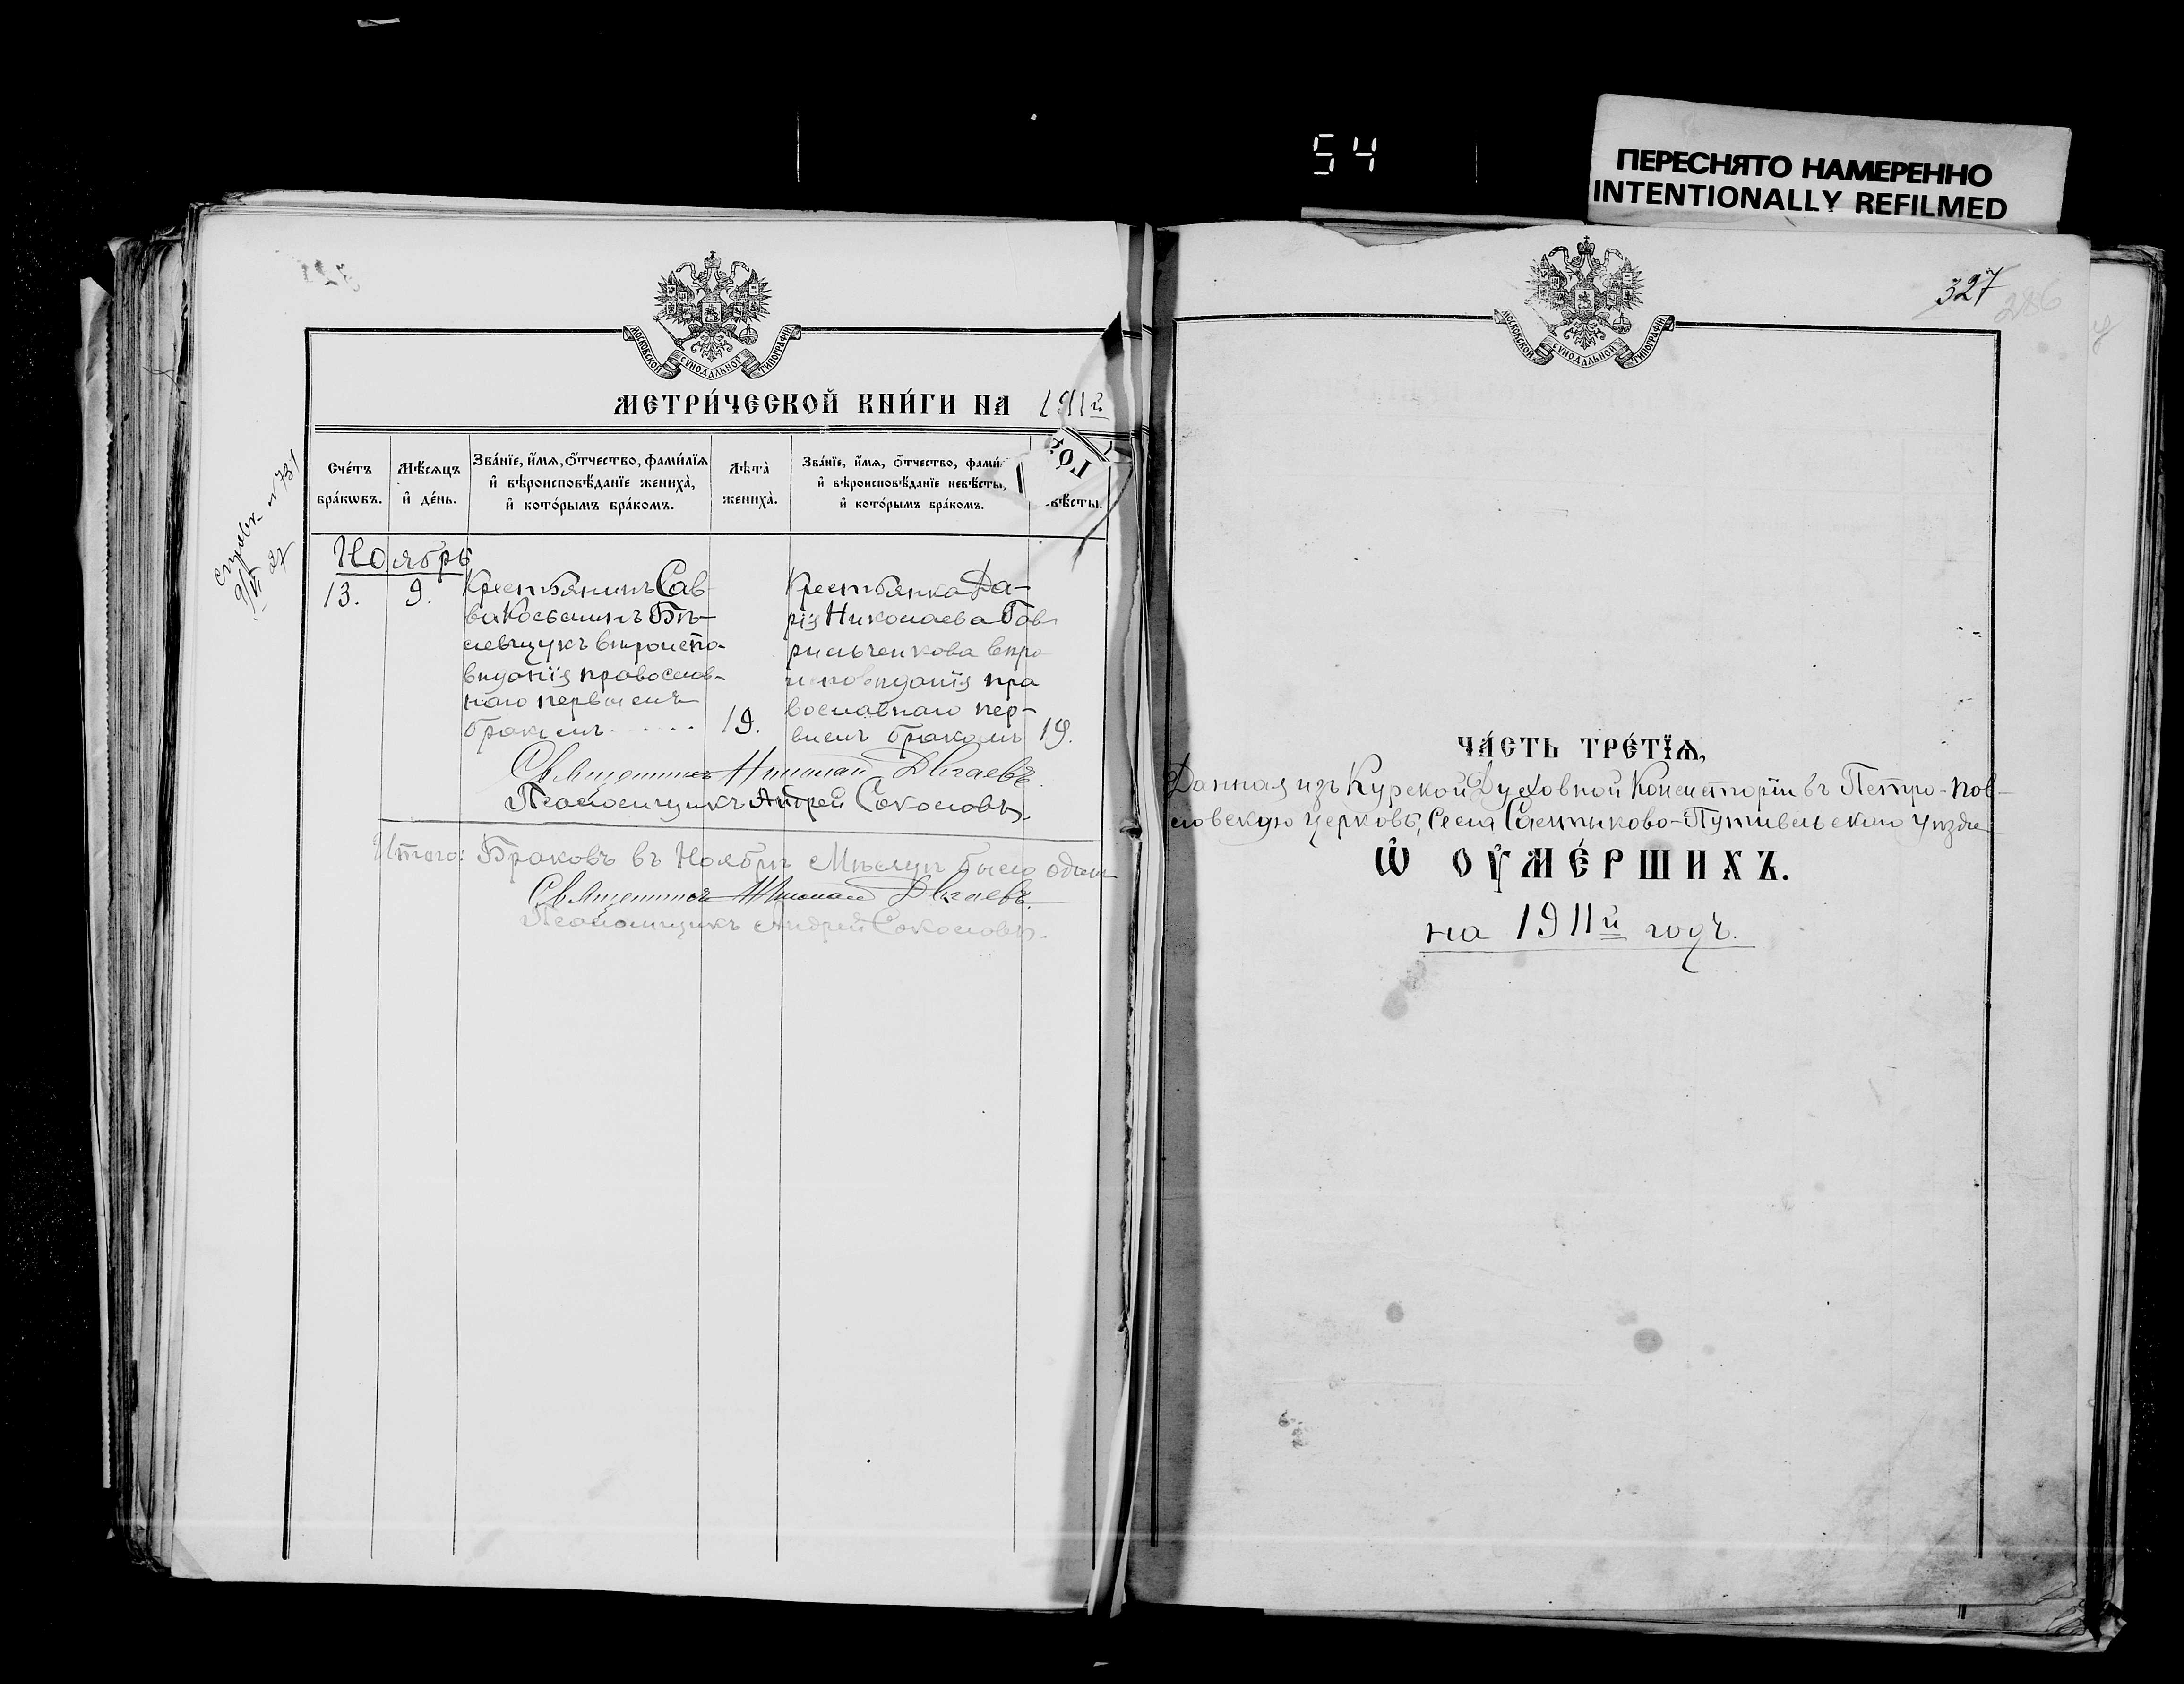 54
ПЕРЕСНЯТО НАМЕРЕННО
INTENTIONALLY REFILMED
МОСКОВСКОЙ СѴНОДАЛЬНОЙ ТИПОГРАФІИ
МЕТРИ́ЧЕСКОЙ КНИ́ГИ НА 1911й
ГО́
Сче́тъ бра́кωвъ.
Мѣ́сяцъ и҆ де́нь.
Зва́нїе, и҆́мя, ѻ҆́тчество, фами́лїя
и҆ вѣроисповѣ́данїе жениха̀,
и҆ кото́рымъ бра́комъ.
Лѣта̀ жениха̀.
Зва́нїе, и҆́мя, ѻ҆́тчество, фами
и҆ вѣроисповѣ́данїе невѣ́сты,
и҆ кото́рымъ бра́комъ.
вѣ́сты.
№ 731
Ноябрь
13.
9.
Крестьянинъ Сав-
ва
вѣроиспо-
вѣданія православ-
наго первымъ
бракомъ
19.
Крестьянка Да-
рія Николаева Гав
рильченкова вѣро
исповѣданія пра
вославнаго пер-
вымъ бракомъ
19.
Священникъ Николай
Псаломщикъ Андрей Соколовъ.
Итого: Браковъ въ Ноябрѣ Мѣсяцѣ было одинъ
Священникъ Николай
Псаломщикъ Андрей Соколовъ.
МОСКОВСКОЙ СѴНОДАЛЬНОЙ ТИПОГРАФІИ
327
286
ЧА́СТЬ ТРЕ́ТЇЯ,
Данная изъ Курской Духовной Консисторіи въ Петро-Пав-
ловскую церковь, Села Салтыково-Путивльскаго уѣзда
Ѽ ОУ҆МЕ́РШИХЪ.
на 1911й годъ.